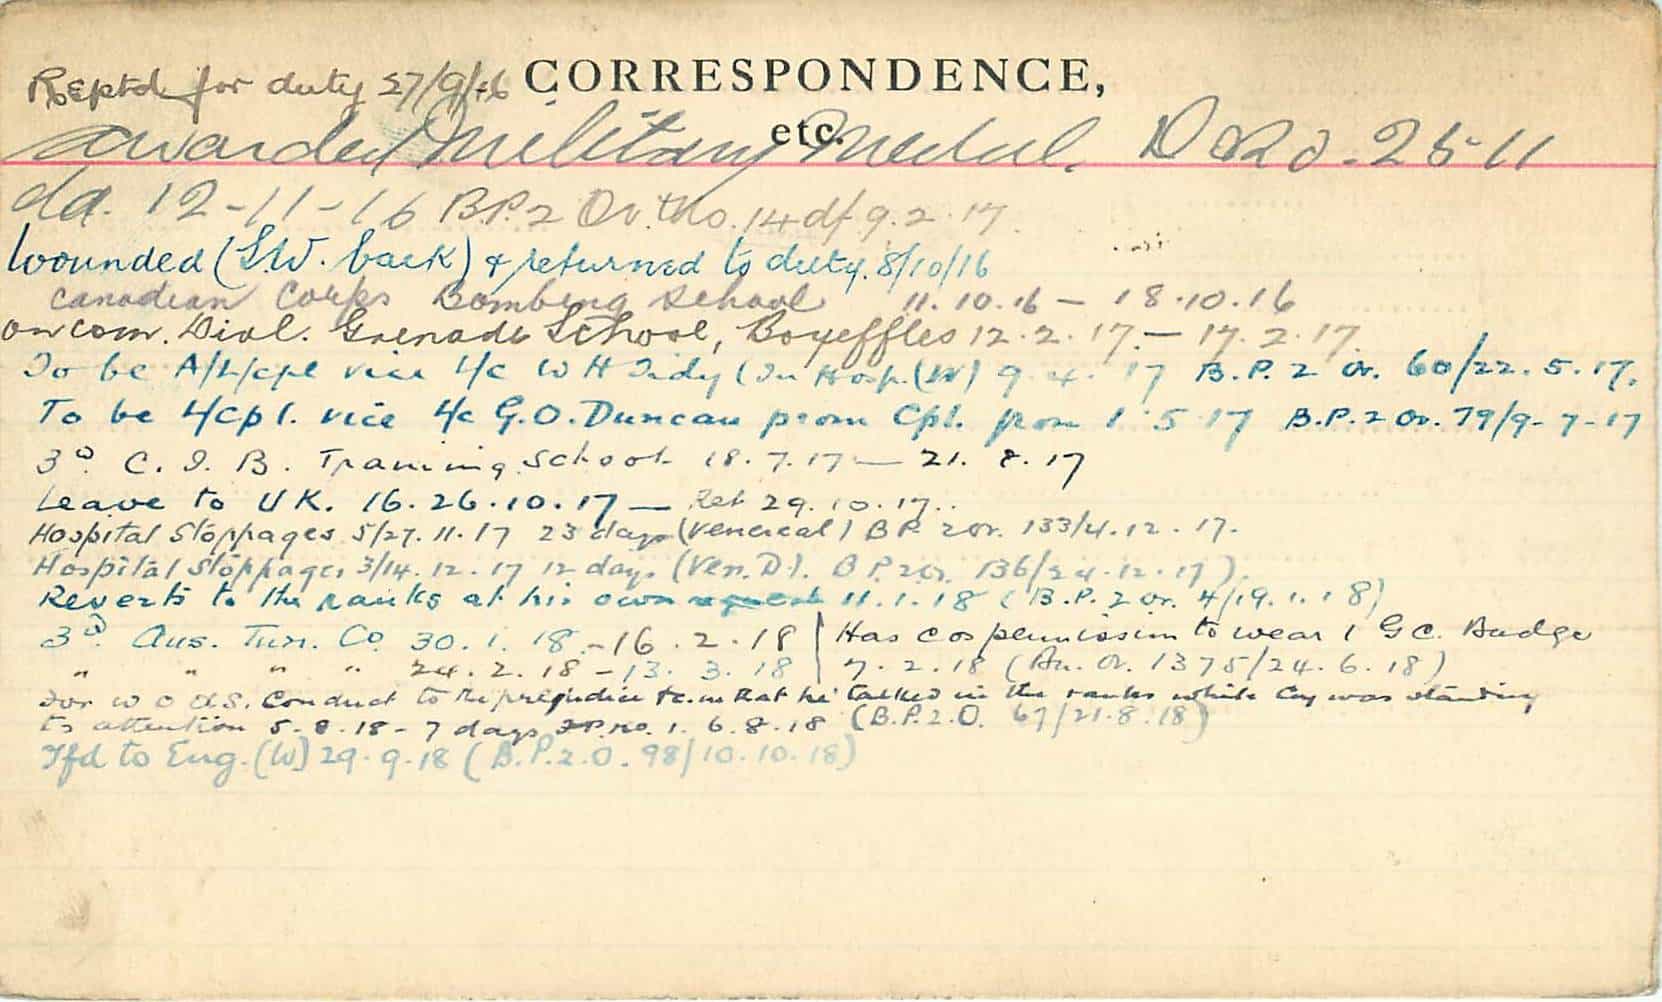 CORRESPONDENCE,
etc.
Reptd for duty 27/9/16
Awarded Military Medal. D R O. 2511
dd. 12-11-16 B.P.2 Or. No. 14 df 9.2.17.
Wounded (S.W. back) & returned to duty. 8/10/16
Canadian Corps Bombing School 11.10.16 - 18.10.16
On com. Divl. Grenade School, Boyeffles 12.2.17. - 17.2.17.
To be A/L/cpl vice L/c W H Tidy (In Hosp. (W) 9.4.17 B.P.2 Or. 60/22.5.17.
To be L/Cpl. vice L/c G.O. Duncan prom Cpl. from 1.5.17 B.P.2 Or. 79/9-7-17
3rd C.I.B. Training School 18.7.17 - 21.8.17
Leave to U K. 16-26.10.17 - Ret 29.10.17..
Hospital Stoppages 5/27.11.17 23 days (Venereal) B P. 2 Or. 133/4.12.17.
Hospital Stoppages 3/14.12.17 12 days (Ven. D.). B P. 2 Or. 136/24.12.17).
Reverts to the ranks at his own request 11.1.18 (B.P. 2 Or. 4/19.1.18)
3rd Aus. Tun. Co 30.1.18.-16.2.18 | Has cos permission to wear 1 G C. Badge
" " " " 24.2.18 - 13.3.18 | 7.2.18 (An. Or. 1375/24.6.18)
For W O A S. Conduct to the prejudice &c. in that he talked in the ranks while Coy was standing
to attention 5.8.18 - 7 days F.P. No. 1. 6.8.18 (B.P.2.O. 67/21.8.18)
Tfd to Eng. (W) 29.9.18 (B.P.2.O. 98/10.10.18)